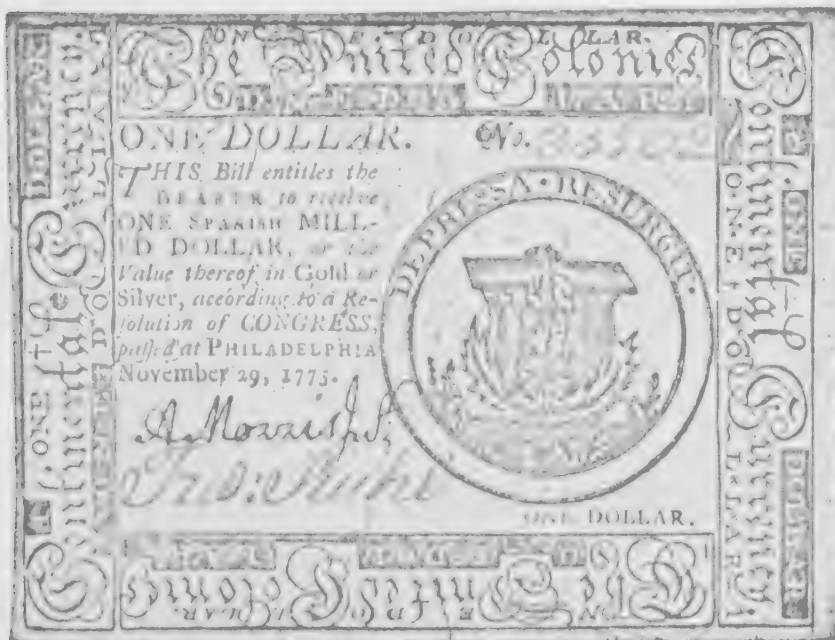 ONE DOLLAR.
The United Colonies
ONE DOLLAR. No.
THIS Bill entitles the
BEARER to receive
ONE SPANISH MILL-
ED DOLLAR, or the
Value thereof in Gold or
Silver, according to a Re-
solution of CONGRESS,
passed at PHILADELPHIA
November 29, 1775.
DEPRESSA • RESURGIT.
A Morris
ONE DOLLAR.
Continental Currency
ONE DOLLAR
Continental Currency
ONE DOLLAR
The United Colonies
ONE DOLLAR.